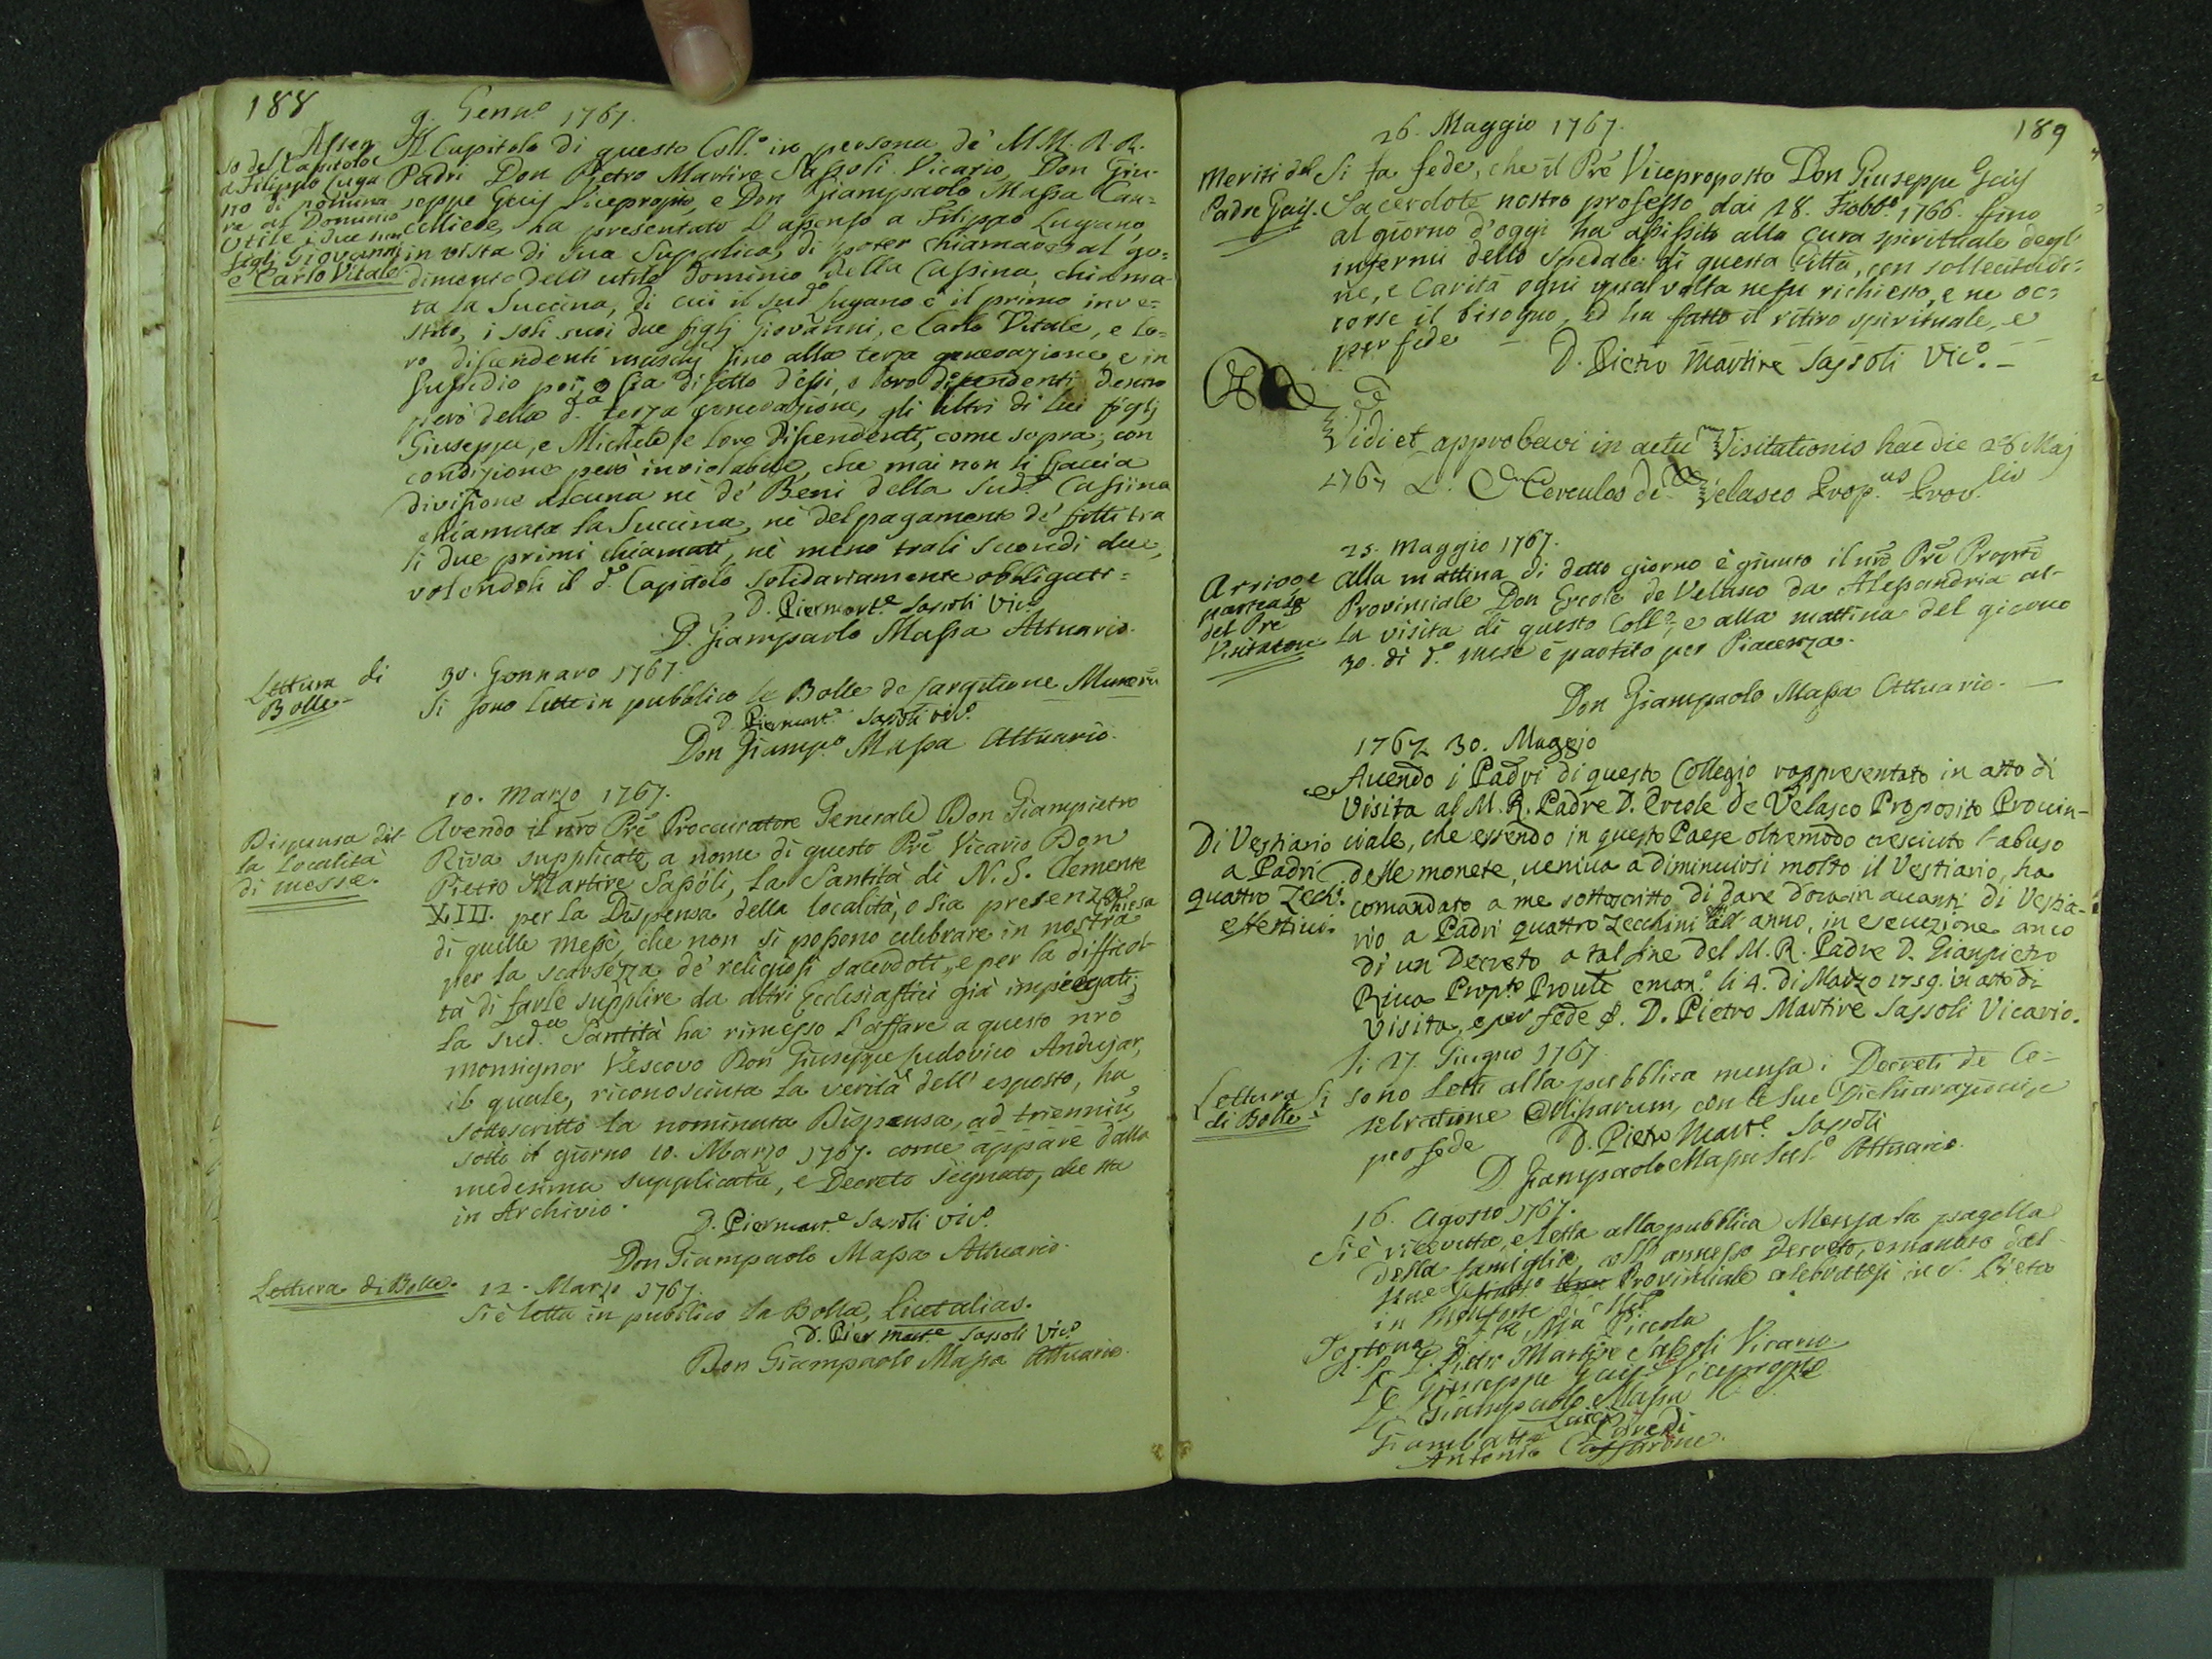 188
9. Genn.o 1767.
Assen
so del Capitolo
a Filippo Luga
no di nomina
re al Dominio
Utile i due suoi
figli Giovanni
e Carlo Vitale
Il Capitolo di questo Coll.o in persona de' M.M. R.R.
Padri Don Pietro Martire Sassoli Vicario, Don Giu-
seppe Gaij Viceproposto, e Don Giampaolo Massa Can=
celliere, ha presentato l'assenso a Filippo Lugano,
in vista di sua Supplica, di poter chiamare al go=
dimento dell'utile Dominio della Cassina, chiama-
ta la Succina, di cui il sud.o Lugano è il primo inve=
stito, i soli suoi due figlj Giovanni, e Carlo Vitale, e lo=
ro discendenti maschj sino alla terza generazione, e in
sussidio poi, o sia difetto d'essi, o loro discendenti dentro
però della d.a terza generazione, gli altri di lui figlj
Giuseppe, e Michele, e loro Discendenti, come sopra; con
condizione però inviolabile, che mai non si faccia
divisione alcuna nè de' Beni della sud.a Cassina
chiamata la Succina, nè del pagamento de' fitti tra
li due primi chiamati, nè meno tra li secondi due,
volendoli il d.o Capitolo solidariamente obbligati =
D. Piermart.e Sassoli Vic.o
D. Giampaolo Massa Attuario.
Lettura di
Bolle
30. Gennaro 1767.
Si sono lette in pubblico le Bolle de largitione Munerũ
D. Piermart.e Sassoli Vic.o
Don Giamp.o Massa Attuario.
Dispensa del
la località
di messe.
10. Marzo 1767.
Avendo il nr̃o Pr̃e Proccuratore Generale Don Giampietro
Riva supplicato a nome di questo Pr̃e Vicario Don
Pietro Martire Sassoli, la Santità di N. S. Clemente
XIII. per la Dispensa della località, o sia presenza
di quelle messe, che non si possono celebrare in nostra chiesa
per la scarsezza de' religiosi sacerdoti, e per la difficol-
tà di farle supplire da altri Ecclesiastici già impiegati;
la sud.a Santità ha rimesso l'affare a questo nr̃o
monsignor Vescovo Don Giuseppe Ludovico Andujar,
il quale, riconosciuta la verità dell'esposto, ha
sottoscritto la nominata Dispensa, ad trienniũ,
sotto il giorno 10. Marzo 1767. come appare dalla
medesima supplicata, e Decreto segnato, che sta
in Archivio.
D. Piermart.e Sassoli Vic.o
Don Giampaolo Massa Attuario.
Lettura di Bolle.
12. Marzo 1767.
Si è letta in pubblico la Bolla, Licet alias.
D. Pier mart.e Sassoli Vic.o
Don Giampaolo Massa Attuario.
189
26. Maggio 1767.
Meriti del
Padre Gaij.
Si fa fede, che il Pr̃e Viceproposto Don Giuseppe Gaij
Sacerdote nostro professo dai 18. 1766. fino
al giorno d'oggi ha assistito alla cura spirituale degl'
infermi dello Spedale di questa Città, con sollecitudi=
ne, e Carità ogni qual volta ne fu richiesto, e ne oc=
corse il bisogno, ed ha fatto il ritiro spirituale, e
per fede
D. Pietro Martire Sassoli Vic.o
Vidi et approbavi in actu Visitationis hac die 28 Maj
1767 D. Hercules de Velasco Prop.us Prov.lis
Arrivo e
partenza
del Pr̃e
Visitatore
25. Maggio 1767.
Alla mattina di detto giorno è giunto il nr̃o Pr̃e Propr̃to
Provinciale Don Ercole de Velasco da Alessandria al-
la visita di questo Coll.o, e alla mattina del giorno
30. di d.o mese è partito per Piacenza.
Don Giampaolo Massa Attuario.
1767 30. Maggio
Di Vestiario
a Padri
quattro Zecch.
effettivi.
Avendo i Padri di questo Collegio rappresentato in atto di
Visita al M. R. Padre D. Ercole de Velasco Proposito Provin-
ciale, che essendo in questo Paese oltremodo cresciuto l'abuso
delle monete, veniva a diminuirsi molto il Vestiario, ha
comandato a me sottoscritto di dare d'ora in avanti di Vestia-
rio a Padri quattro Zecchini all'anno, in esecuzione anco
di un Decreto a tal fine del M. R. Padre D. Gianpietro
Riva Prop.to Prov.le eman.o li 4. di Marzo 1759. in atto di
Visita, e per fede D. Pietro Martire Sassoli Vicario.
li 17. Giugno 1767.
Lettura
di Bolle
Si sono letti alla pubblica mensa i Decreti de Ce=
lebratione Missarum, con le sue Dichiarazioni, e
per fede D. Pietro Mart.e Sassoli
D. Giampaolo Massa Attuario.
16. Agosto 1767.
Si è ricevuta, e letta alla pubblica Mensa la pagella
della famiglia, coll'annesso Decreto, emanato dal
Provinciale celebratosi in S. Pietro
in Monforte di Mil.o
Tortona S.ta M.a Piccola
D. Pietro Martire Sassoli Vicario
D. Giuseppe Gaij Viceprop.to
D. Giampaolo Massa
Giambatt.a
Antonio